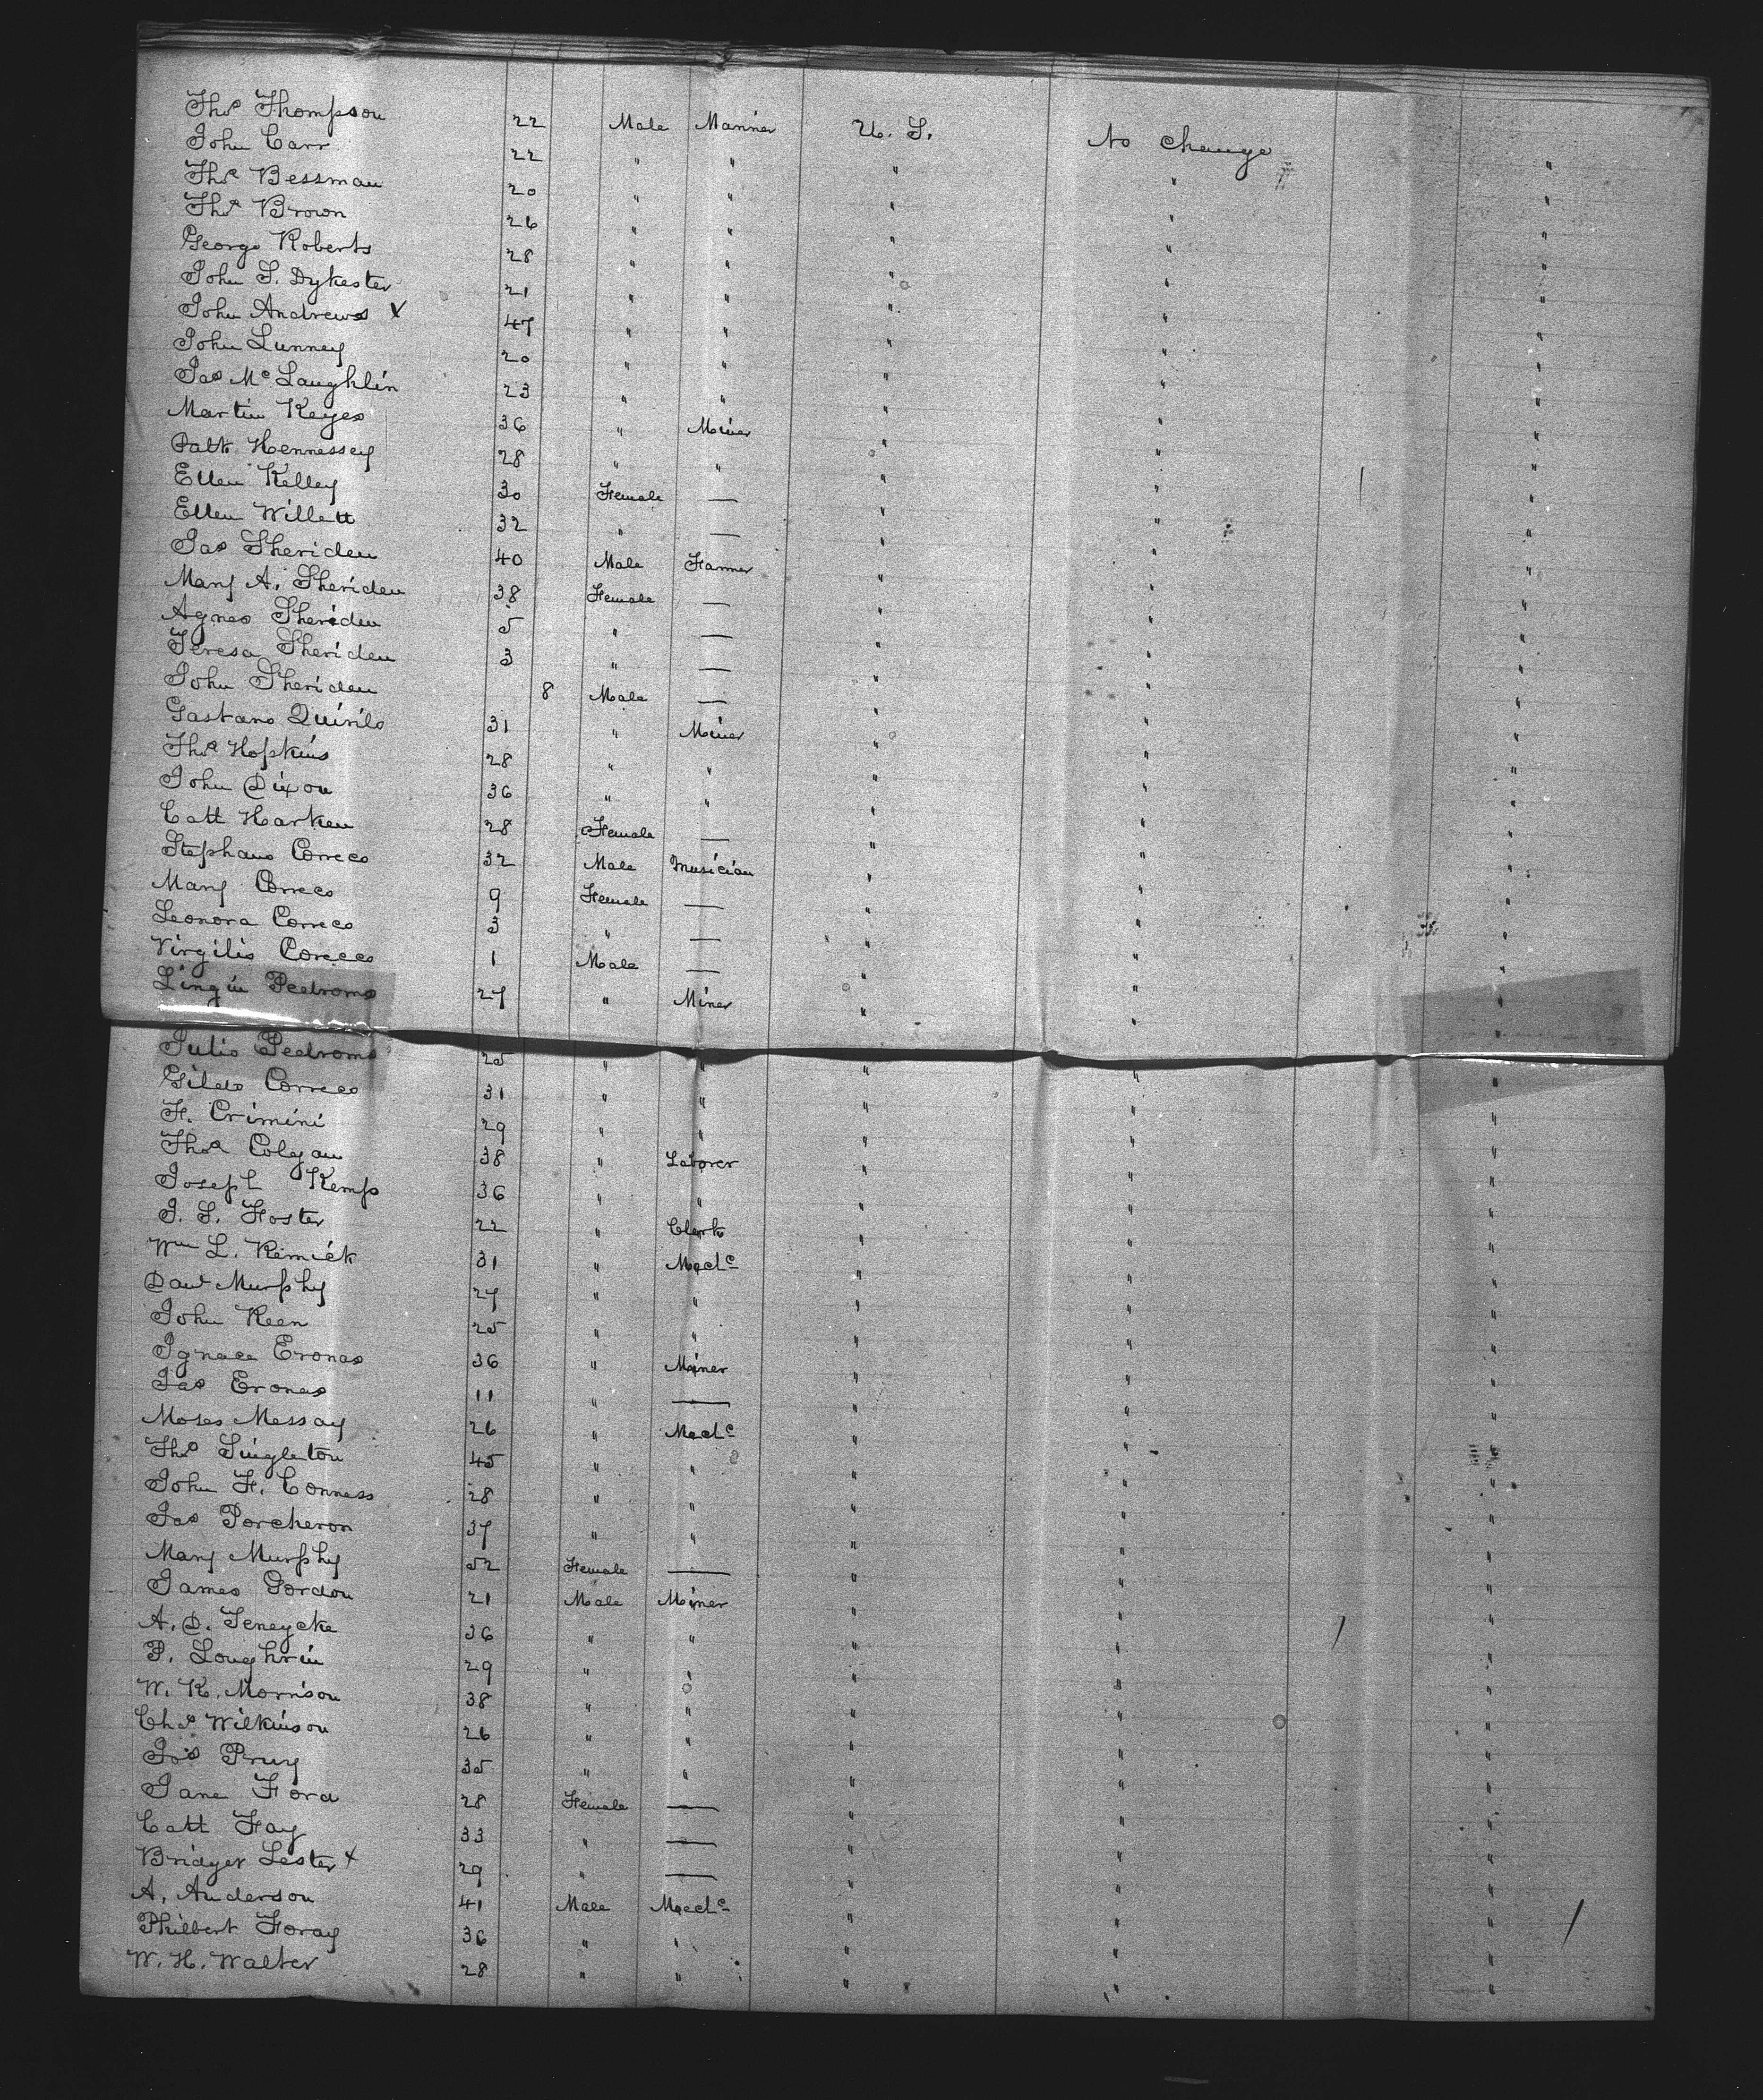 Thos Thompson 22 Male Mariner U. S. No change
John Carr 22 " " " " "
Thos Bessman 20 " " " " "
Thos Brown 26 " " " " "
George Roberts 28 " " " " "
John S. Dykester 21 " " " " "
John Andrews X 47 " " " " "
John Lunney 20 " " " " "
Jas McLaughlin 23 " " " " "
Martin Keyes 36 " Miner " " "
Patk Hennessey 28 " " " " "
Ellen Kelley 30 Female — " " "
Ellen Willett 32 " — " " "
Jas Sheriden 40 Male Farmer " " "
Mary A. Sheriden 38 Female — " " "
Agnes Sheriden 5 " — " " "
Teresa Sheriden 3 " — " " "
John Sheriden 8 Male — " " "
Gastano Quirilo 31 " Miner " " "
Thos Hopkins 28 " " " " "
John Dixon 36 " " " " "
Catt Harken 28 Female — " " "
Stephano Correco 32 Male Musician " " "
Mary Correco 9 Female — " " "
Leonora Correco 3 " — " " "
Virgilio Correco 1 Male — " " "
Lingin Pedroms 27 " Miner " " "
Julio Pedroms 25 " " " " "
Gildo Correco 31 " " " " "
F. Crimini 29 " " " " "
Thos Colgan 38 " Laborer " " "
Joseph Kemp 36 " " " " "
J. S. Foster 22 " Clerk " " "
Wm L. Remick 31 " Mechc " " "
Danl Murphy 27 " " " " "
John Keen 25 " " " " "
Ignace Eronas 36 " Miner " " "
Jas Eronas 11 " — " " "
Moses Messay 26 " Mechc " " "
Thos Singleton 45 " " " " "
John F. Conness 28 " " " " "
Jas Porcheron 37 " " " " "
Mary Murphy 52 Female — " " "
James Gordon 21 Male Miner " " "
A. D. Teneycke 36 " " " " "
P. Loughrin 29 " " " " "
W. K. Morrison 38 " " " " "
Chas Wilkinson 26 " " " " "
Jos Pruy 35 " " " " "
Jane Ford 28 Female — " " "
Catt Fay 33 " — " " "
Bridger Lester X 29 " — " " "
A. Anderson 41 Male Mechc " " "
Philbert Foray 36 " " " " "
W. H. Walter 28 " " " " "